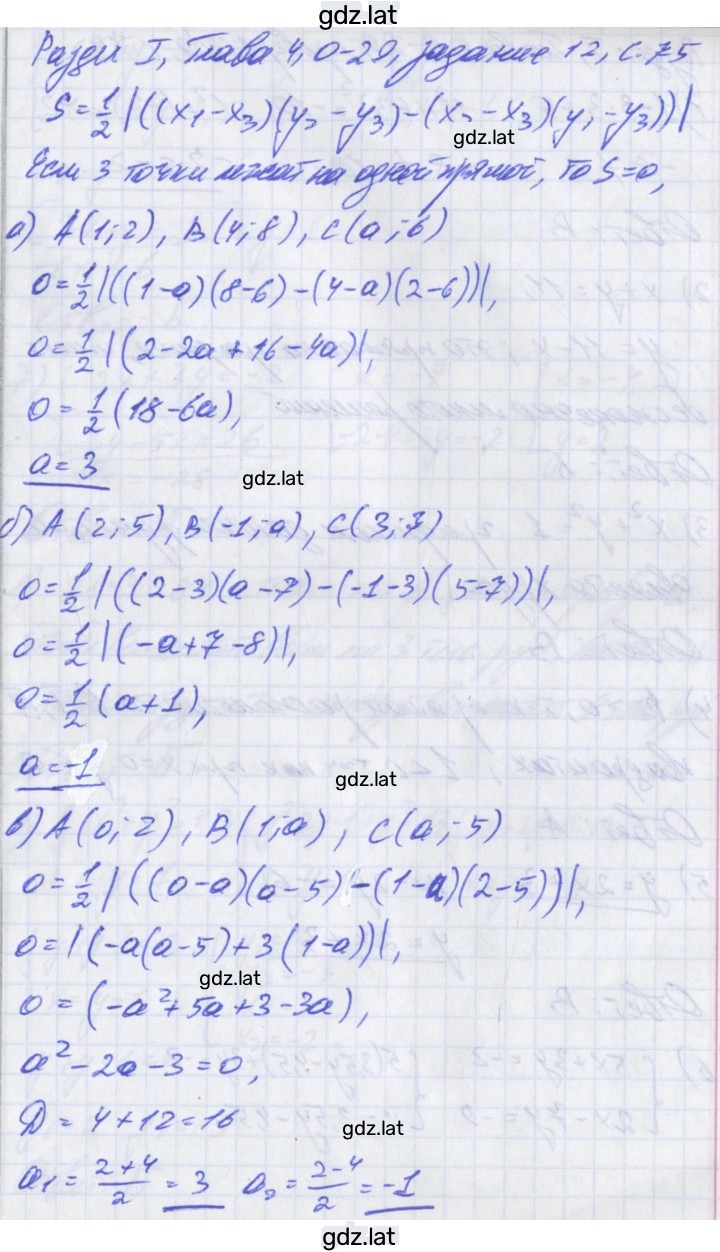 gdz.lat
Раздел I, Глава 4, О-29, задание 12, с. 75
S = 1/2 |((x₁ - x₃)(y₂ - y₃) - (x₂ - x₃)(y₁ - y₃))|
gdz.lat
Если 3 точки лежат на одной прямой, то S = 0,
а) A(1; 2), B(4; 8), C(a; 6)
0 = 1/2 |((1-a)(8-6) - (4-a)(2-6))|,
0 = 1/2 |(2-2a+16-4a)|,
0 = 1/2 (18-6a),
a = 3
gdz.lat
б) A(2; 5), B(-1; a), C(3; 7)
0 = 1/2 |((2-3)(a-7) - (-1-3)(5-7))|,
0 = 1/2 |(-a+7-8)|,
0 = 1/2 (a+1),
a = -1
gdz.lat
в) A(0; 2), B(1; a), C(a; 5)
0 = 1/2 |((0-a)(a-5) - (1-a)(2-5))|,
0 = |(-a(a-5)+3(1-a))|,
gdz.lat
0 = (-a²+5a+3-3a),
a² - 2a - 3 = 0,
D = 4 + 12 = 16
gdz.lat
a₁ = (2+4)/2 = 3 a₂ = (2-4)/2 = -1
gdz.lat